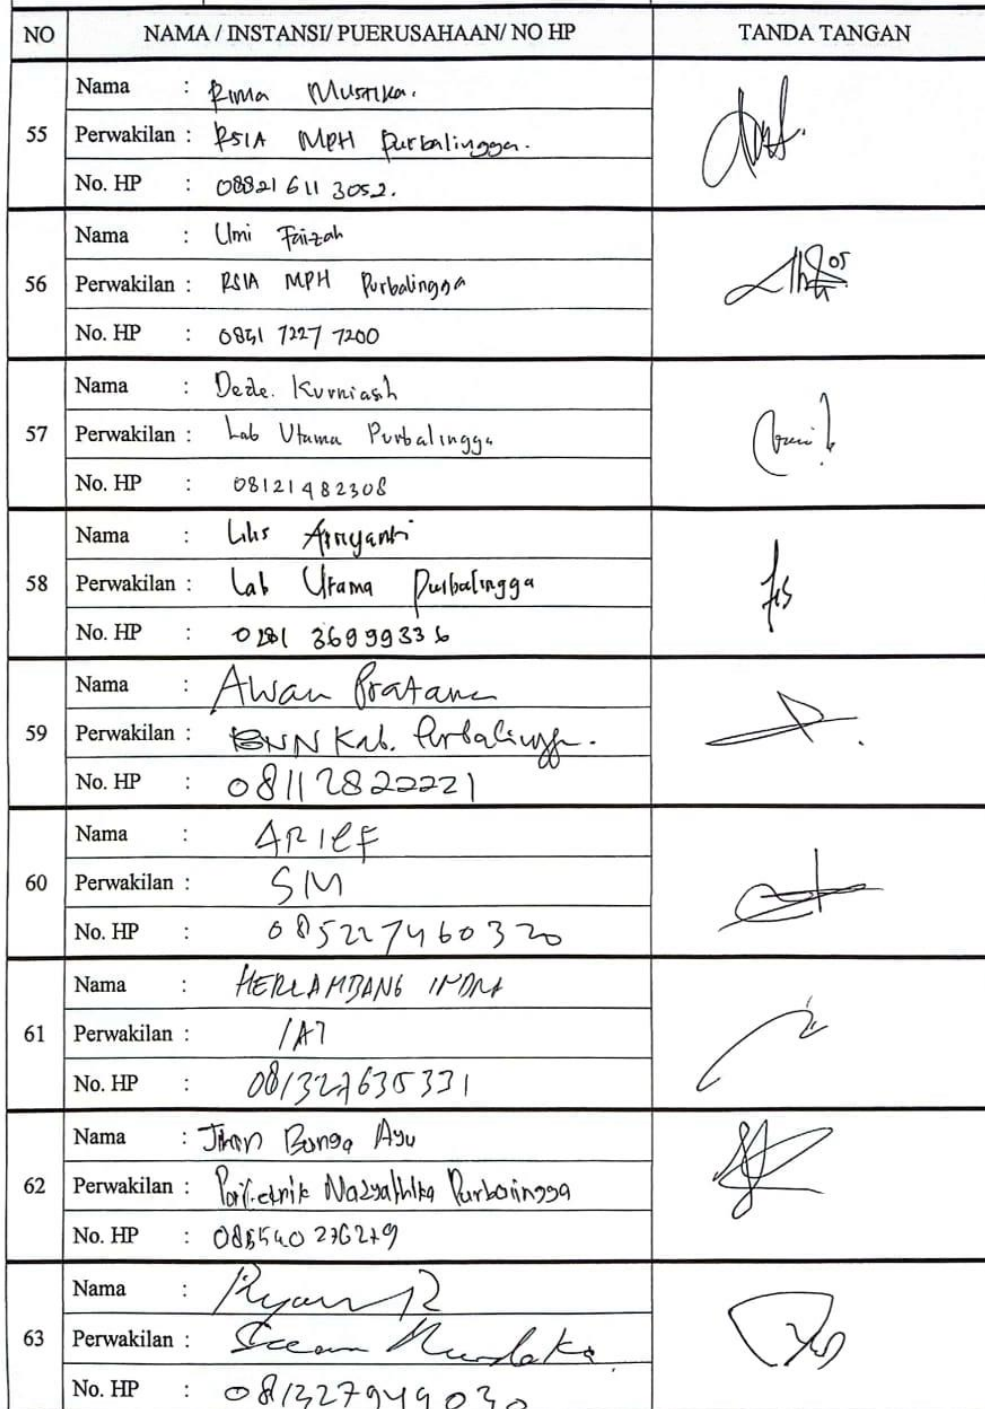 NO NAMA / INSTANSI/ PUERUSAHAAN/ NO HP TANDA TANGAN
55
Nama : Rima Mustika.
Perwakilan : RSIA MPH Purbalingga.
No. HP : 08821 611 3052.
56
Nama : Umi Faizah
Perwakilan : RSIA MPH Purbalingga
No. HP : 0851 7227 7200
57
Nama : Dede. Kurniash
Perwakilan : Lab Utama Purbalingga
No. HP : 08121482308
58
Nama : Lilis
Perwakilan : Lab Utama Purbalingga
No. HP :
59
Nama : Awan Pratama
Perwakilan : BNN Kab. Purbalingga.
No. HP : 08112822221
60
Nama : ARIEF
Perwakilan : SM
No. HP : 085227460320
61
Nama : HERLAMBANG INDRA
Perwakilan :
No. HP :
62
Nama : Bunga Ayu
Perwakilan :
No. HP :
63
Nama : Ryan R
Perwakilan : Merdeka
No. HP : 081327949030